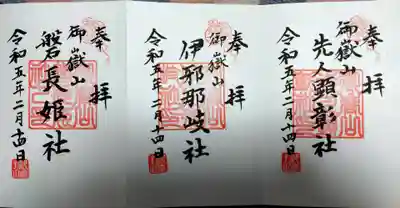 奉拝
御嶽山
先人顕彰社
令和五年二月十四日
奉拝
御嶽山
伊邪那岐社
令和五年二月十四日
奉拝
御嶽山
磐長姫社
令和五年二月十四日